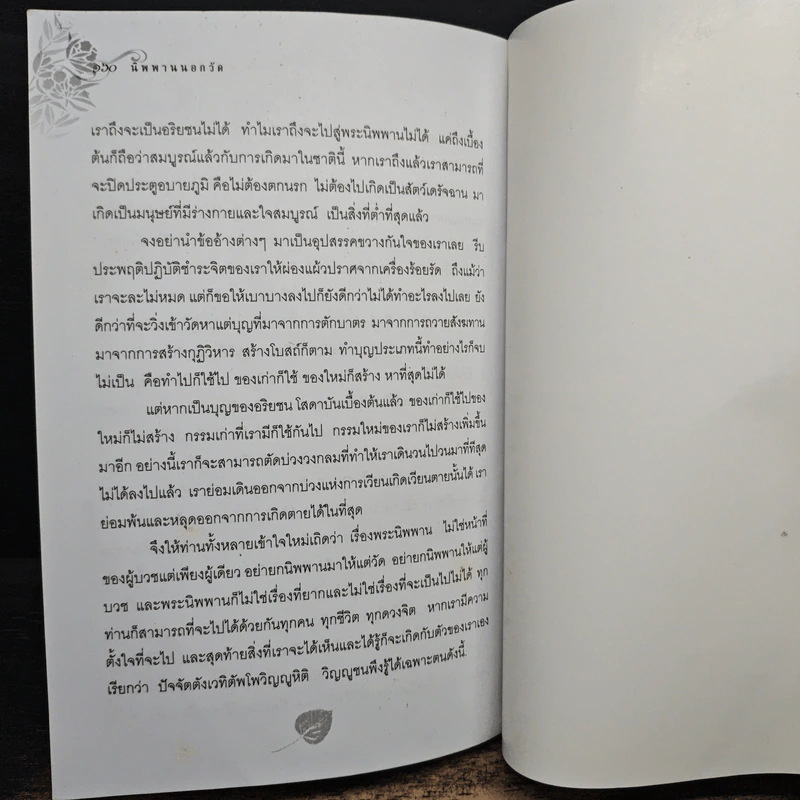 ๑๖๐ นิพพานนอกวัด
เราถึงจะเป็นอริยชนไม่ได้ ทำไมเราถึงจะไปสู่พระนิพพานไม่ได้ แค่ถึงเบื้อง
ต้นก็ถือว่าสมบูรณ์แล้วกับการเกิดมาในชาตินี้ หากเราถึงแล้วเราสามารถที่
จะปิดประตูอบายภูมิ คือไม่ต้องตกนรก ไม่ต้องไปเกิดเป็นสัตว์เดรัจฉาน มา
เกิดเป็นมนุษย์ที่มีร่างกายและใจสมบูรณ์ เป็นสิ่งที่ต่ำที่สุดแล้ว
จงอย่านำข้ออ้างต่างๆ มาเป็นอุปสรรคขวางกันใจของเราเลย รีบ
ประพฤติปฏิบัติชำระจิตของเราให้ผ่องแผ้วปราศจากเครื่องร้อยรัด ถึงแม้ว่า
เราจะละไม่หมด แต่ก็ขอให้เบาบางลงไปก็ยังดีกว่าไม่ได้ทำอะไรลงไปเลย ยัง
ดีกว่าที่จะวิ่งเข้าวัดหาแต่บุญที่มาจากการตักบาตร มาจากการถวายสังฆทาน
มาจากการสร้างกุฏิวิหาร สร้างโบสถ์ก็ตาม ทำบุญประเภทนี้ทำอย่างไรก็จบ
ไม่เป็น คือทำไปก็ใช้ไป ของเก่าก็ใช้ ของใหม่ก็สร้าง หาที่สุดไม่ได้
แต่หากเป็นบุญของอริยชน โสดาบันเบื้องต้นแล้ว ของเก่าก็ใช้ไปของ
ใหม่ก็ไม่สร้าง กรรมเก่าที่เรามีก็ใช้กันไป กรรมใหม่ของเราก็ไม่สร้างเพิ่มขึ้น
มาอีก อย่างนี้เราก็จะสามารถตัดบ่วงวงกลมที่ทำให้เราเดินวนไปวนมาที่ที่สุด
ไม่ได้ลงไปแล้ว เราย่อมเดินออกจากบ่วงแห่งการเวียนเกิดเวียนตายนั้นได้ เรา
ย่อมพ้นและหลุดออกจากการเกิดตายได้ในที่สุด
จึงให้ท่านทั้งหลายเข้าใจใหม่เถิดว่า เรื่องพระนิพพาน ไม่ใช่หน้าที่
ของผู้บวชแต่เพียงผู้เดียว อย่ายกนิพพานมาให้แต่วัด อย่ายกนิพพานให้แต่ผู้
บวช และพระนิพพานก็ไม่ใช่เรื่องที่ยากและไม่ใช่เรื่องที่จะเป็นไปไม่ได้ ทุก
ท่านก็สามารถที่จะไปได้ด้วยกันทุกคน ทุกชีวิต ทุกดวงจิต หากเรามีความ
ตั้งใจที่จะไป และสุดท้ายสิ่งที่เราจะได้เห็นและได้รู้ก็จะเกิดกับตัวของเราเอง
เรียกว่า ปัจจัตตังเวทิตัพโพวิญญูหิติ วิญญูชนพึงรู้ได้เฉพาะตนดังนี้.